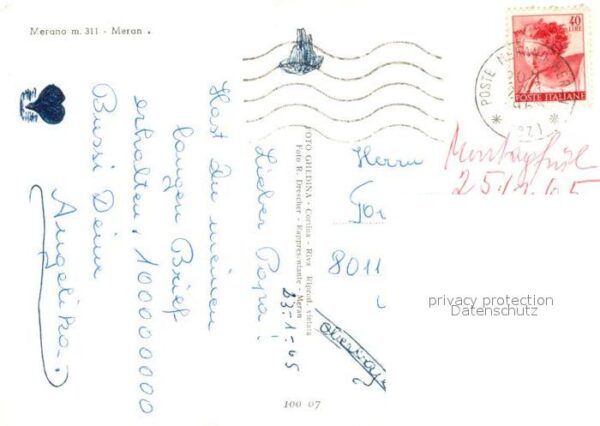 Merano m. 311 - Meran
40
LIRE
POSTE ITALIANE
POSTE MERANO
(BZ)
23-1-65
Lieber Papa!
Hast Du meinen
langen Brief
erhalten, 100000000
Bussi Deine
Angelika.
FOTO GHEDINA - Cortina - Riva Riprod. vietata
Foto R. Drescher - Rappresentante - Meran
Herrn
8011
25.1.65
privacy protection
Datenschutz
100 07